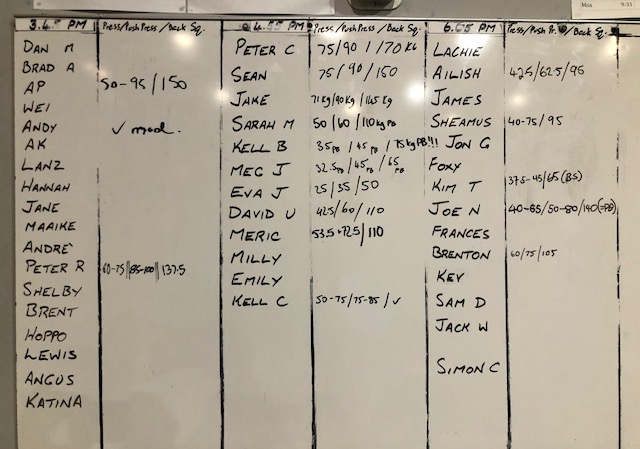 3.45 PM Press/Push Press/Back Sq.
DAN M
BRAD A
AP 50-95/150
WEI
ANDY ✓ mod.
AK
LANZ
HANNAH
JANE
MAAIKE
ANDRE
PETER R 60-75||85-100||137.5
SHELBY
BRENT
HOPPO
LEWIS
ANGUS
KATINA
4.55 PM Press/Push Press/Back Sq.
PETER C 75/90/170 KG
SEAN 75/90/150
JAKE 71Kg/90Kg/165Kg
SARAH M 50/60/110kg PB
KELL B 35PB/45PB/75kg PB!!!
MEG J 32.5PB/45PB/65PB
EVA J 25/35/50
DAVID U 42.5/60/110
MERIC 53.5+72.5/110
MILLY
EMILY
KELL C 50-75/75-85/✓
PM Press/Push Pr. /Back Sq.
LACHIE
AILISH 42.5/62.5/95
JAMES
SHEAMUS 40-75/95
JON G
FOXY
KIM T 37.5-45/65(BS)
JOE N 40-65/50-80/140(=PB)
FRANCES
BRENTON 60/75/105
KEV
SAM D
JACK W
SIMON C
Mos 9:31